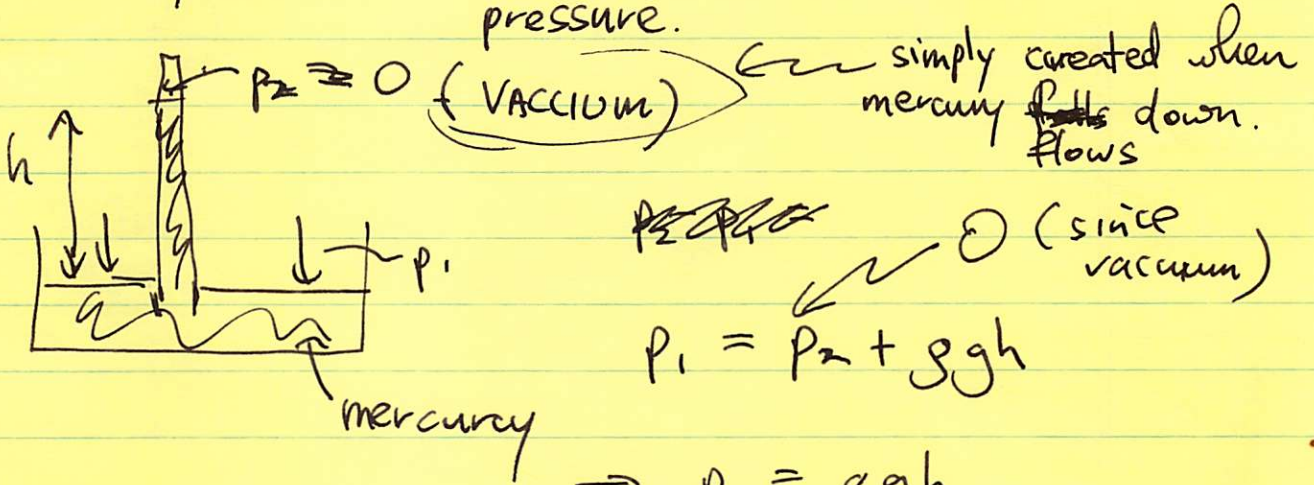 pressure.
p₂ ≈ 0 (VACCIUM)
simply careated when
mercury flows down.
h
p₁
0 (since
vacuum)
p₁ = p₂ + ρgh
mercurcy
⇒ p₁ = ρgh